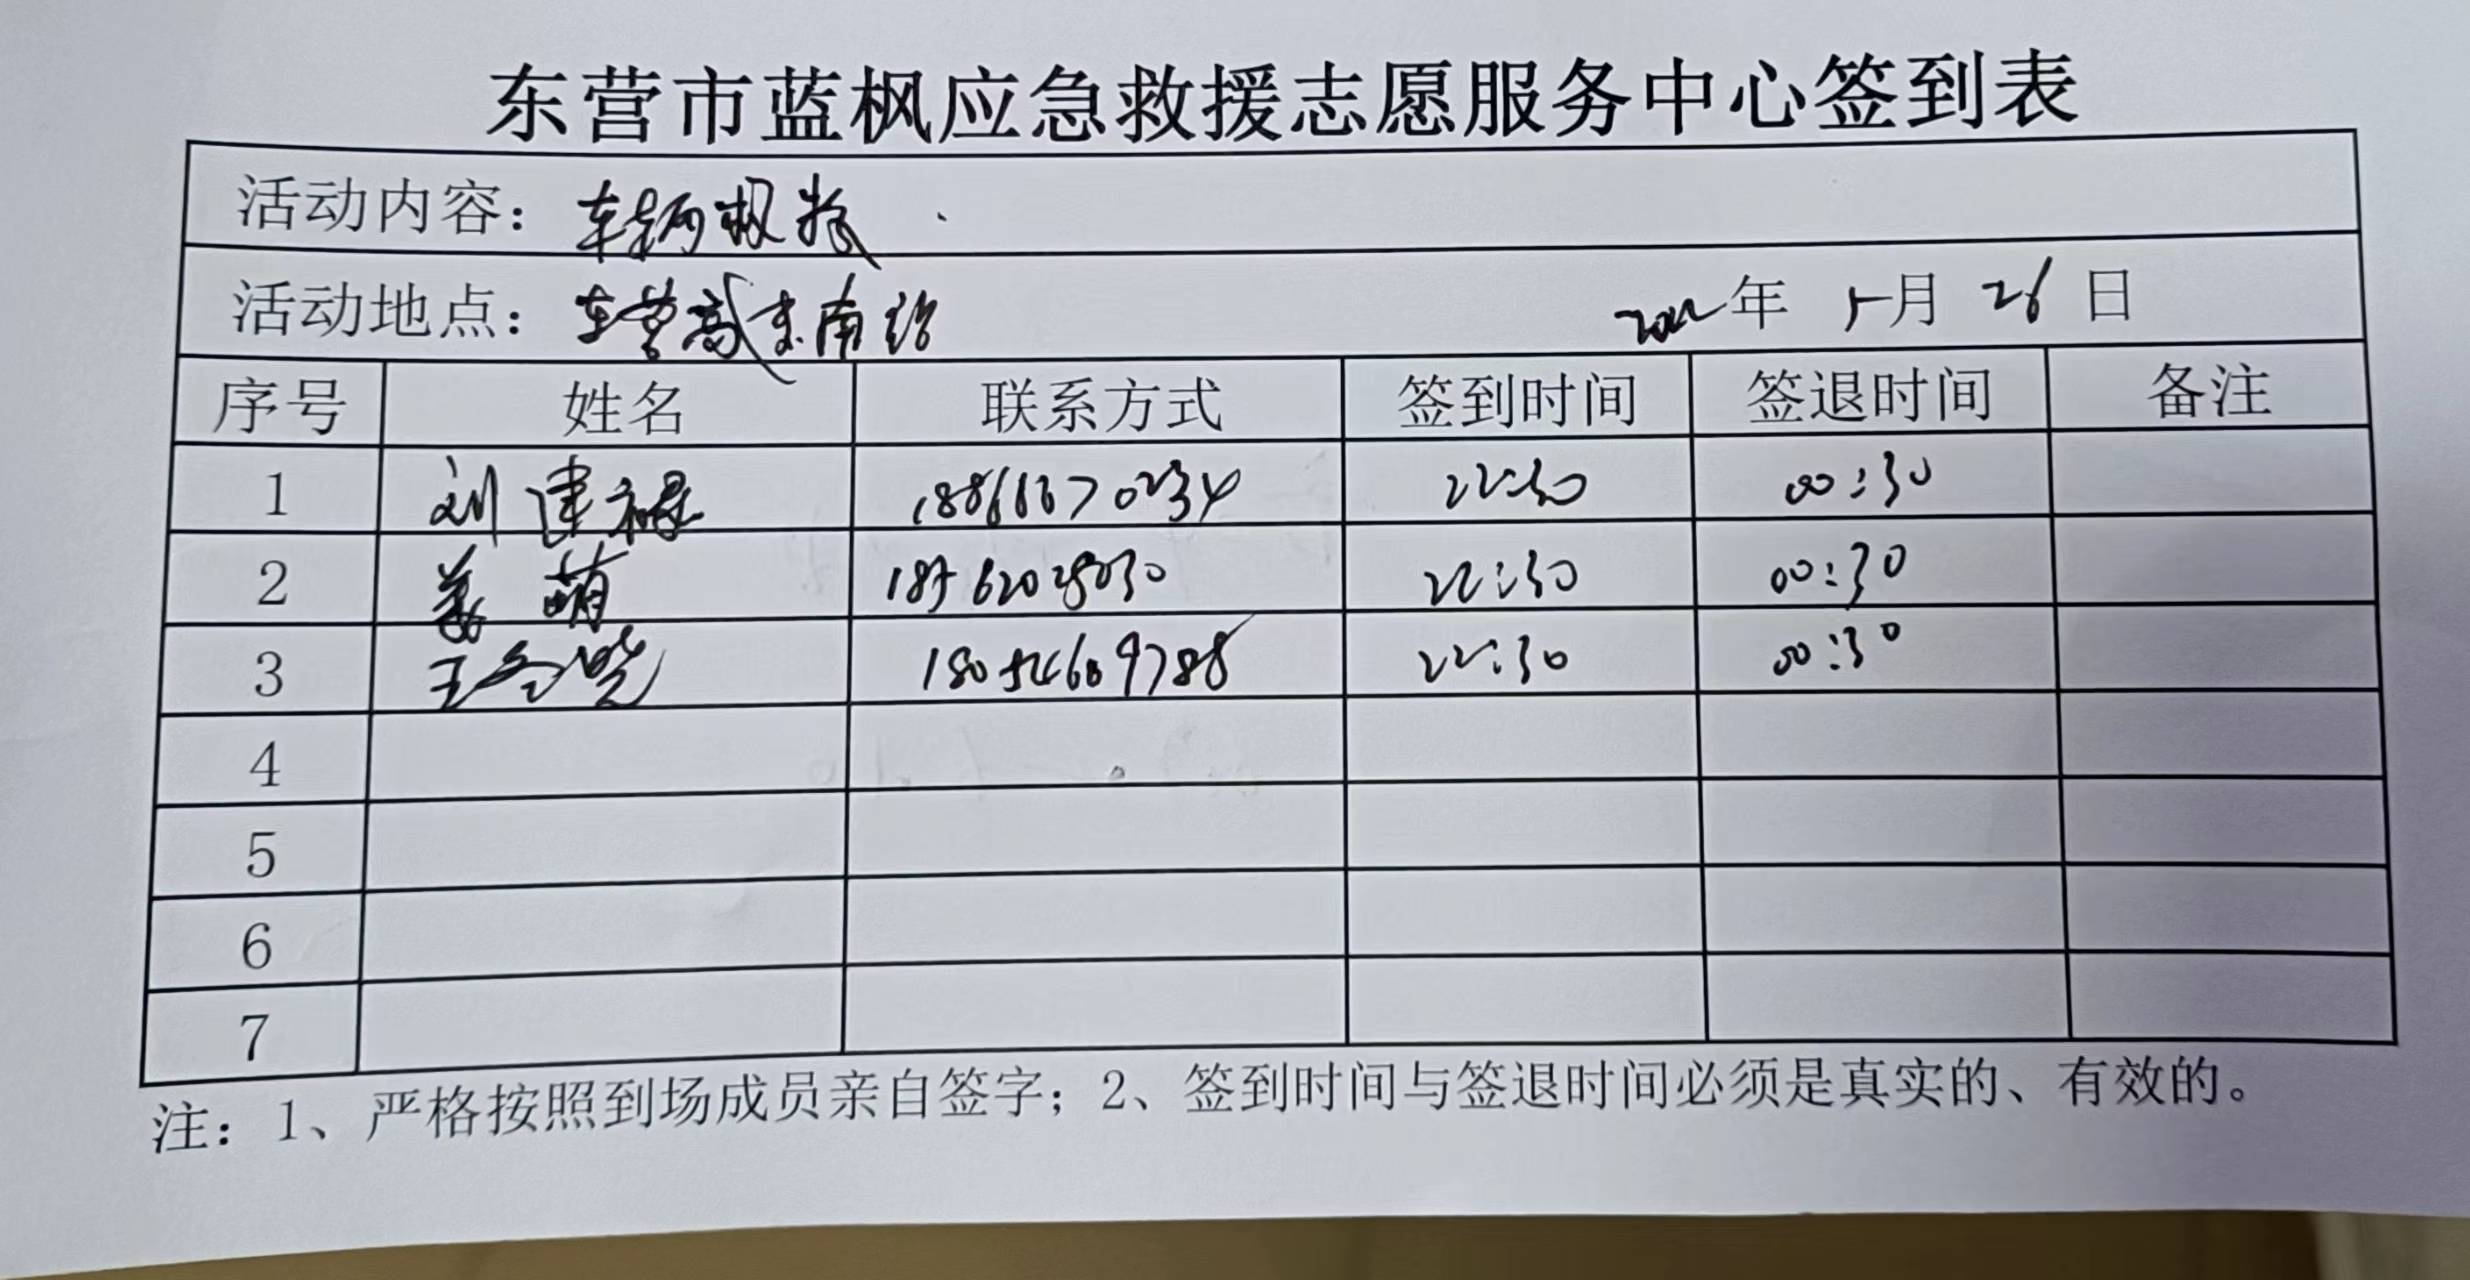 东营市蓝枫应急救援志愿服务中心签到表
活动内容：车辆救援
活动地点：东营高速南站 2022年 5月 26日
序号 姓名 联系方式 签到时间 签退时间 备注
1 刘建禄 18866670234 22:30 00:30
2 姜萌 18562028030 22:30 00:30
3 王 晓 18054669788 22:30 00:30
4
5
6
7
注：1、严格按照到场成员亲自签字；2、签到时间与签退时间必须是真实的、有效的。